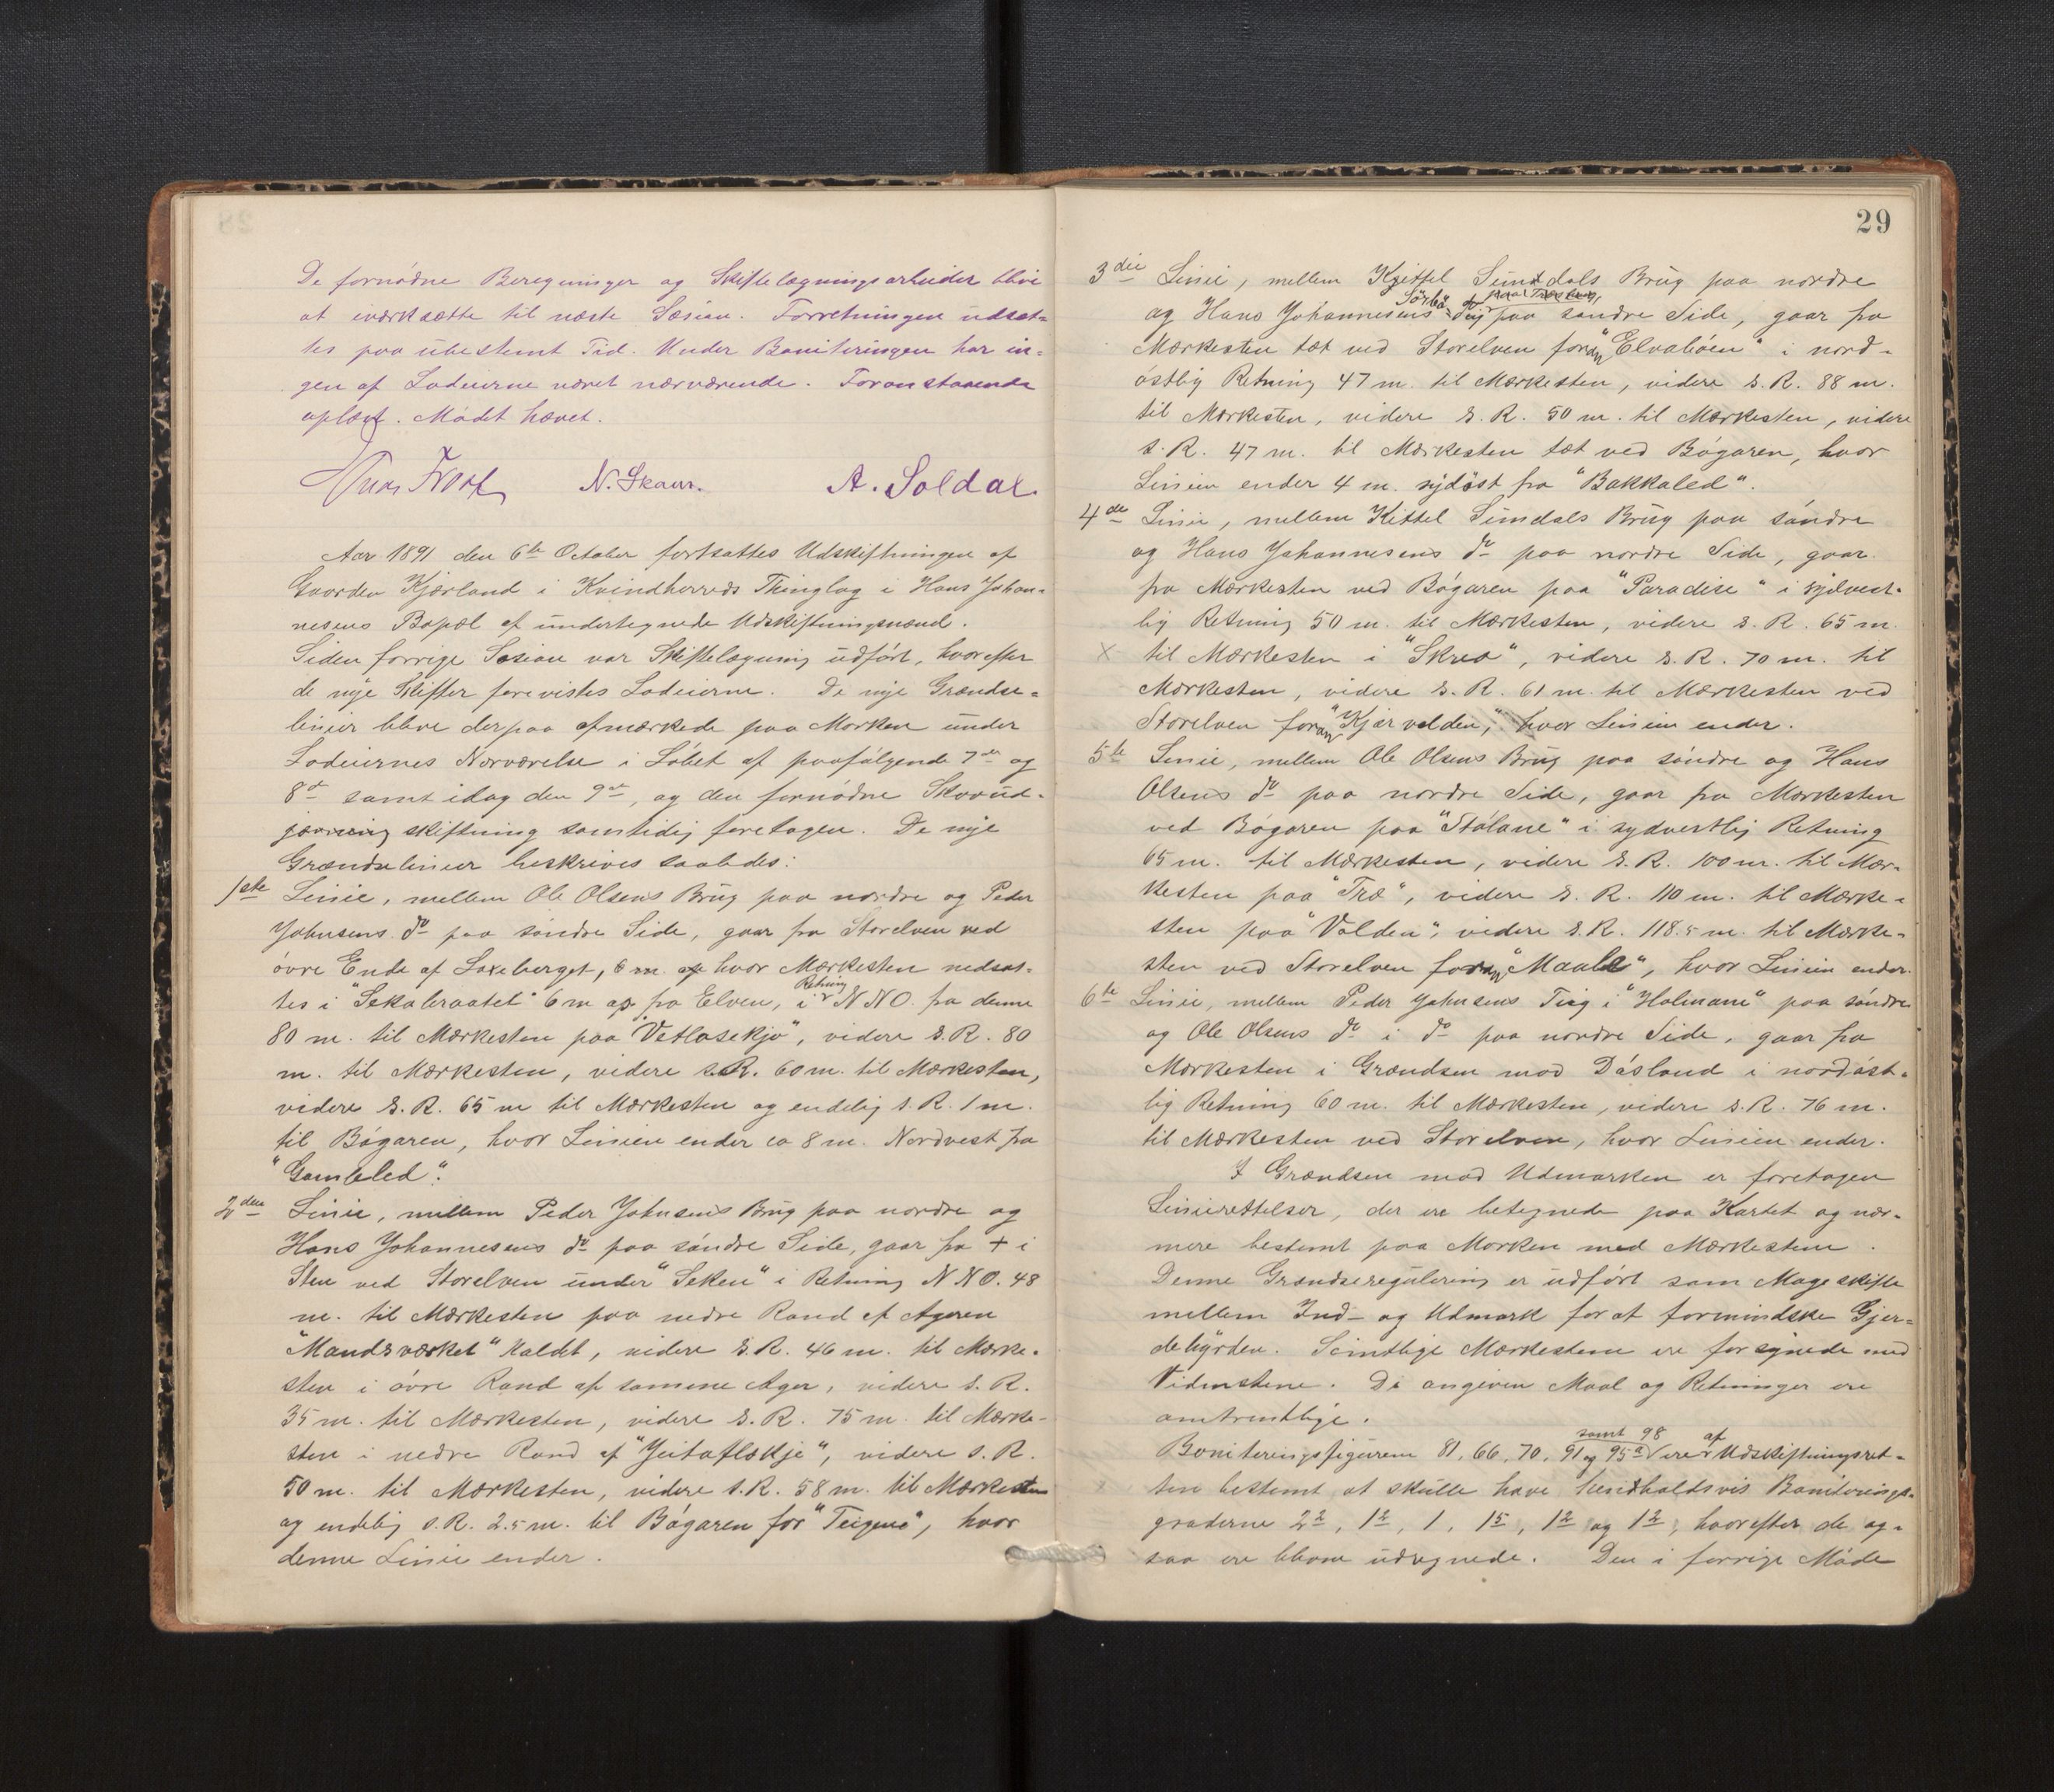 De fornødne Beregninger og Skiftelægningsarbeider blive
at iværksætte til næste Sæsion. Forretningen udsat-
tes paa ubestemt Tid. Under Boniteringen har in-
gen af Lodeierne været nærværende. Foranstaaende
oplæst. Mødet hævet.
N. Skaar. A. Soldal
Aar 1891 den 6te October fortsattes Udskiftningen af
Gaarden Kjærland i Kvindherreds Thinglag i Hans Johan-
nesens Bopæl af undertegnede Udskiftningsmænd.
Siden forrige Sæsion var Skiftelægning udført, hvorefter
de nye Skifter forevistes Lodeierne. De nye Grændse-
linier bleve derpaa afmærkede paa Marken under
Lodeiernes Nærværelse i Løbet af paafølgende 7de og
8de samt idag den 9de, og den fornødne Skovud-
skiftning samtidig foretagen. De nye
Grændselinier beskrives saaledes:
1ste Linie, mellem Ole Olsens Brug paa nordre og Peder
Johnsens do paa søndre Side, gaar fra Storelven ved
øvre Ende af Laxeberget, 6 m. op hvor Mærkesten nedsat-
tes i "Sekaleraatet" 6 m op fra Elven, i Retning NNO. fra denne
80 m. til Mærkesten paa "Vetlasekjo", videre s. R. 80
m. til Mærkesten, videre s. R. 60 m. til Mærkesten,
videre s. R. 65 m til Mærkesten og endelig s. R. 1 m.
til Bøgaren, hvor Linien ender ca 8 m. Nordvest fra
"Gamleled".
2den Linie, mellem Peder Johnsens Brug paa nordre og
Hans Johannesens do paa søndre Side, gaar fra + i
Sten ved Storelven under "Seken" i Retning NNO. 48
m. til Mærkesten paa nedre Rand af Ageren
"Mandsverket" kaldet, videre s. R. 46 m. til Mærke-
sten i øvre Rand af samme Ager, videre s. R.
35 m. til Mærkesten, videre s. R. 75 m. til Mærke-
sten i nedre Rand af "Geitaflekje", videre s. R.
50 m. til Mærkesten, videre s. R. 58 m. til Mærkesten
og endelig s. R. 2.5 m. til Bøgaren for "Teigene", hvor
denne Linie ender.
29
3die Linie, mellem Kittel Sundals Brug paa nordre
og Hans Johannesens "Sørbø" Teig paa søndre Side, gaar fra
Mærkesten tæt ved Storelven foran "Elvabøen" i nord-
østlig Retning 47 m. til Mærkesten, videre s. R. 88 m.
til Mærkesten, videre s. R. 50 m. til Mærkesten, videre
s. R. 47 m. til Mærkesten tæt ved Bøgaren, hvor
Linien ender 4 m. sydøst fra "Bakkaled".
4de Linie, mellem Kittel Sundals Brug paa søndre
og Hans Johannesens do paa nordre Side, gaar
fra Mærkesten ved Bøgaren paa "Paradise" i sydvest-
lig Retning 50 m. til Mærkesten, videre s. R. 65 m.
x til Mærkesten i "Skrea", videre s. R. 70 m. til
Mærkesten, videre s. R. 61 m. til Mærkesten ved
Storelven foran "Kjærvolden", hvor Linien ender.
5te Linie, mellem Ole Olsens Brug paa søndre og Hans
Olsens do paa nordre Side, gaar fra Mærkesten
ved Bøgaren paa "Stølane" i sydvestlig Retning
65 m. til Mærkesten, videre s. R. 100 m. til Mær-
kesten paa "Træ", videre s. R. 110 m. til Mærke-
sten paa "Volden", videre s. R. 118.5 m. til Mærke-
sten ved Storelven foran "Maale", hvor Linien ender.
6te Linie, mellem Peder Johnsens Teig i "Holmane" paa søndre
og Ole Olsens do i do paa nordre Side, gaar fra
Mærkesten i Grændsen mod Døsland i nordøst-
lig Retning 60 m. til Mærkesten, videre s. R. 76 m.
til Mærkesten ved Storelven, hvor Linien ender.
I Grændsen mod Udmarken er foretagen
Linierettelser, der ere betegnede paa Kartet og nær-
mere bestemt paa Marken med Mærkestene.
Denne Grændseregulering er udført som Mageskifte
mellem Ind- og Udmark for at formindske Gjer-
debyrden. Samtlige Mærkestene ere forsynede med
Vidnestene. De angivne Maal og Retninger ere
omtrentlige.
Boniteringsfigurerne 81, 66, 70, 91 og 95a samt 98 ere af Udskiftningsret-
ten bestemt at skulle have henholdsvis Boniterings-
graderne 2², 1², 1, 1⁵, 1² og 1², hvorefter de og-
saa ere blevne udregnede. Den i forrige Møde